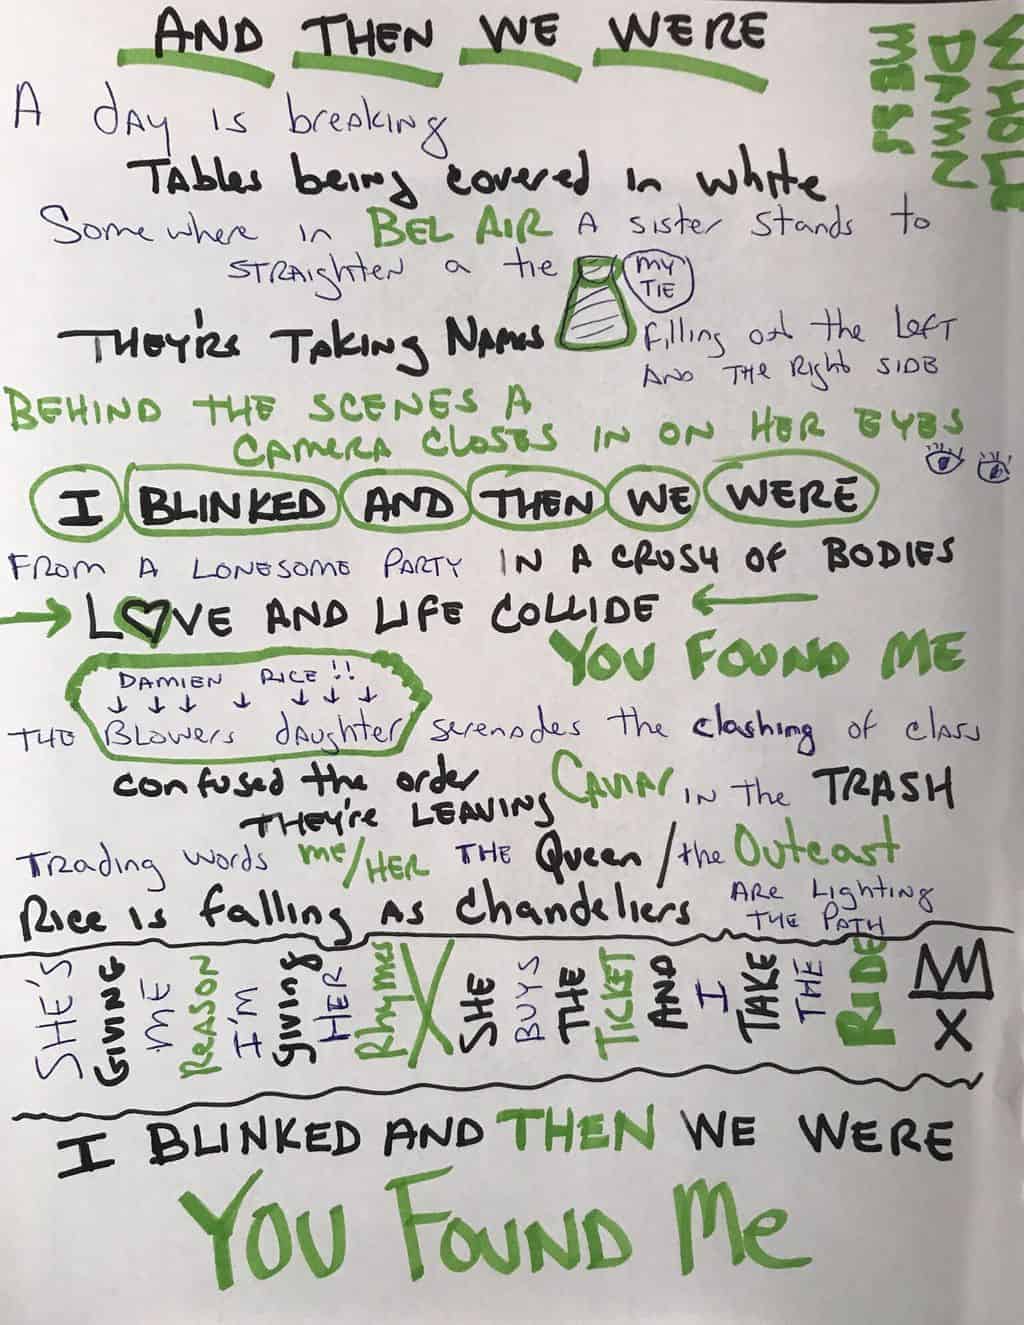 AND THEN WE WERE
WHOLE
DAMN
MESS
A day is breaking
Tables being covered in white
Somewhere in BEL AIR A sister stands to
STRAIGHTEN a tie
MY
TIE
They're Taking Names
filling out the Left
AND THE Right SIDE
BEHIND THE SCENES A
CAMERA CLOSES IN ON HER EYES
I BLINKED AND THEN WE WERE
FROM A LONESOME PARTY IN A CRUSH OF BODIES
LOVE AND LIFE COLLIDE
YOU FOUND ME
DAMIEN RICE!!
THE BLOWERS daughter serenades the clashing of class
confused the order
They're LEAVING Caviar IN the TRASH
Trading words me/HER THE Queen/the Outcast
Rice is falling as chandeliers ARE Lighting
THE PATH
SHE'S
GIVING
ME
REASON
I'M
giving
HER
Rhymes
SHE
BUYS
THE
TICKET
AND
I
TAKE
THE
RIDE
X
I BLINKED AND THEN WE WERE
YOU FOUND Me